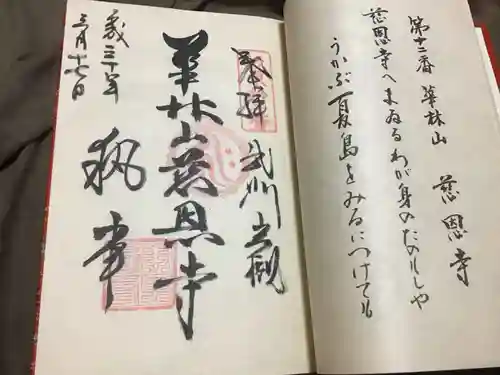 第十二番 華林山 慈恩寺
慈恩寺へまゐるわが身のたのもしや
うかぶ夏島をみるにつけても
奉拝 武州 立観
華林山慈恩寺
執事
三月十七日